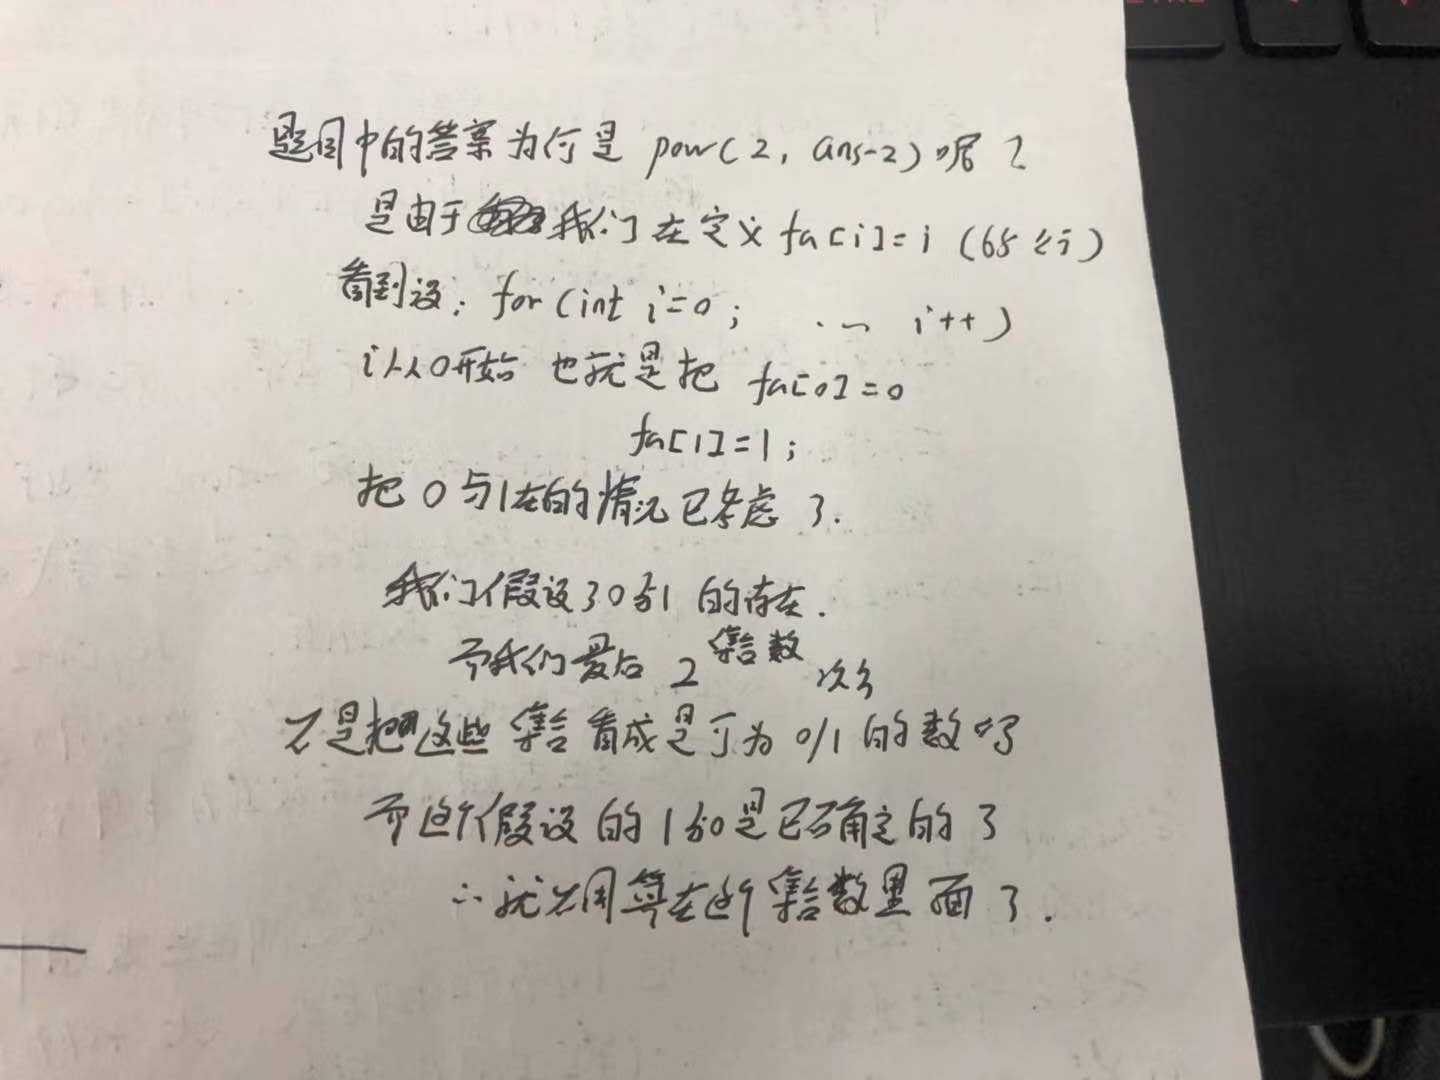 题目中的答案为何是 pow(2, ans-2) 呢？
是由于我们在定义 fa[i]=i (65行)
看到没: for(int i=0; ... i++)
i从0开始 也就是把 fa[0]=0
fa[1]=1;
把 0 与 1在的情况已考虑了.
我们假设了0与1 的存在.
而我们最后 2^集合数 次方
不是把这些 集合 看成是可为 0/1 的数吗
而这个假设的 1与0是已确定的了
∴就不用算在这个集合数里面了.